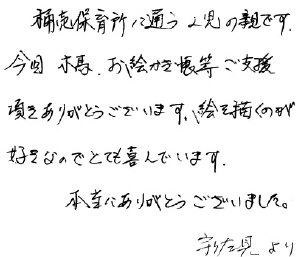 桶売保育所に通う2児の親です.
今回 木馬、お絵かき帳等ご支援
頂きありがとうございます.絵を描くのが
好きなのでとても喜んでいます.
本当にありがとうございました。
宇佐見 より